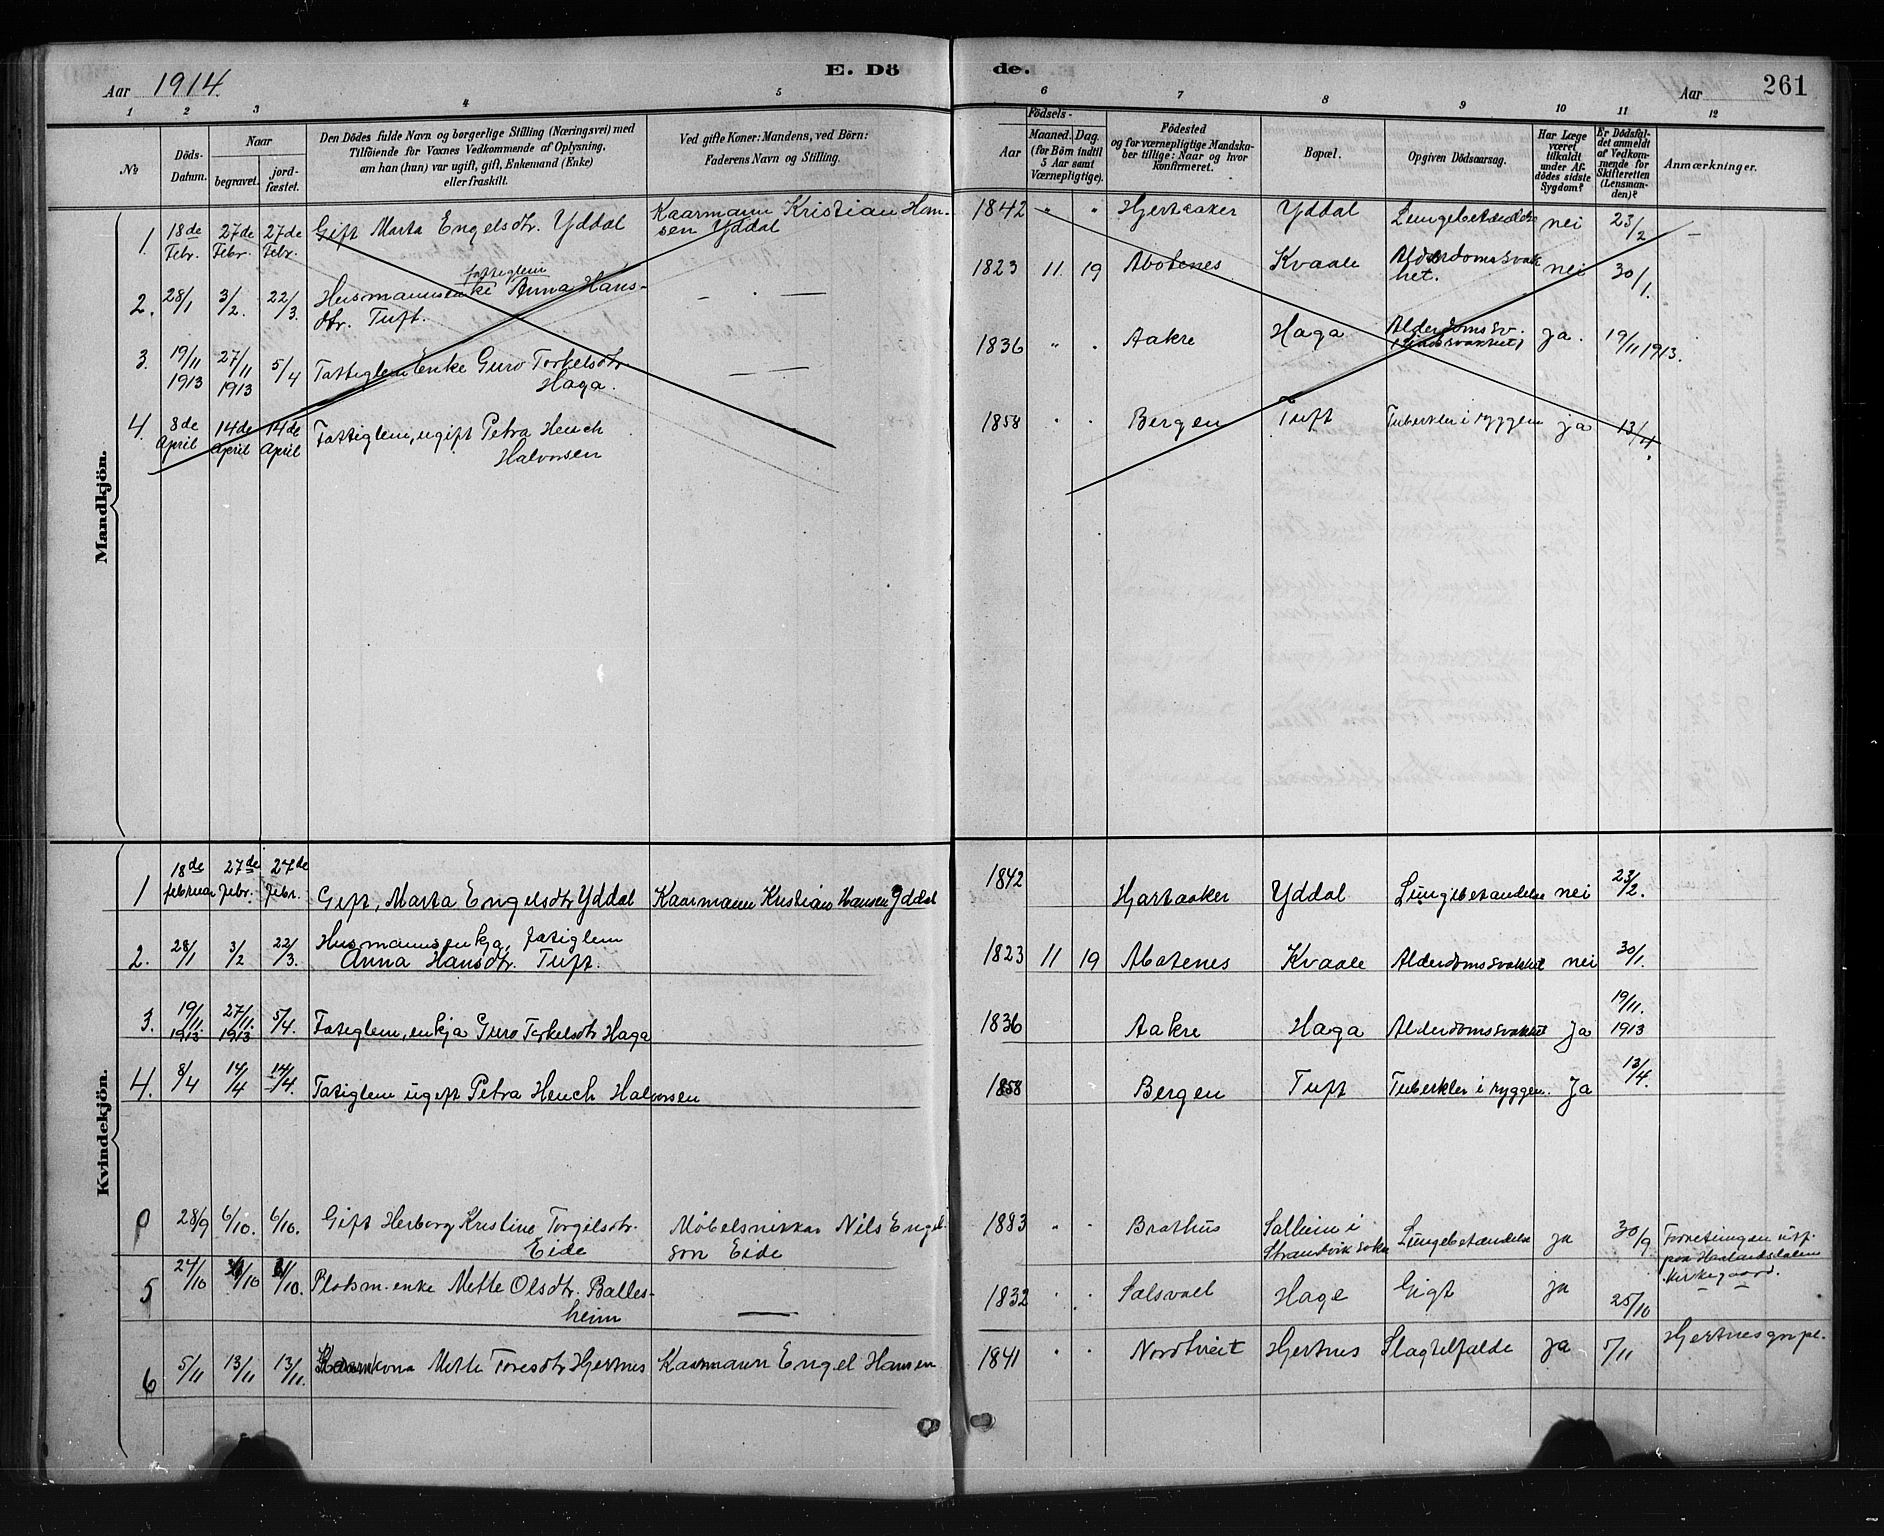 Aar 1914. E. Dö de. Aar 261
1 2 3 4 5 6 7 8 9 10 11 12
No
Döds-
Datum.
Naar
begravet.
jord-
fæstet.
Den Dödes fulde Navn og borgerlige Stilling (Næringsvei) med
Tilföiende for Voxnes Vedkommende af Oplysning,
om han (hun) var ugift, gift, Enkemand (Enke)
eller fraskilt.
Ved gifte Koner: Mandens, ved Börn:
Faderens Navn og Stilling.
Födsels-
Aar
Maaned. Dag.
(for Börn indtil
5 Aar samt
Værnepligtige).
Födested
og for værnepligtige Mandska-
ber tillige: Naar og hvor
konfirmeret.
Bopæl.
Opgiven Dödsaarsag.
Har Læge
været
tilkaldt
under Af-
dödes sidste
Sygdom?
Er Dödsfal-
det anmeldt
af Vedkom-
mende for
Skifteretten
(Lensman-
den)?
Anmærkninger.
Mandkjön.
1. 18de Febr. 27de Febr. 27de Febr. Gift Marta Engelsdtr. Yddal Kaarmann Kristian Han-
sen Yddal 1842 " " Hjertaaker Yddal Lungebetændelse nei 23/2 –
2. 28/1 3/2. 22/3. Husmannsenke fattiglem Anna Hans-
dtr. Tuft. – . – 1823 11. 19 Abotenes Kvaale Alderdomssvak
het. nei 30/1.
3. 19/11 1913 27/11 1913 5/4 Fattiglem Enke Guro Torkelsdtr
Haga. – – 1836 " . Aakre Haga Alderdomssv. ja. 19/11 1913.
4. 8de April 14de April 14de April Fattiglem, ugift Petra Hench
Halvorsen 1858 . . Bergen Tuft Tuberkler i ryggen ja 13/4.
Kvindekjön.
1 18de februar 27de Febr. 27de Febr. Gift, Marta Engelsdtr Yddal Kaarmann Kristian Hansen Yddal 1842 Hjartaaker Yddal Lungebetændelse nei 23/2.
2. 28/1 3/2 22/3. Husmannsenkja, fatiglem
Anna Hansdtr. Tuft. 1823 11 19 Abotenes Kvaale Alderdomssvakhet nei 30/1.
3. 19/11 1913. 27/11. 1913 5/4. Fatiglem, enkja Guro Torkelsdtr Haga 1836 Aakre Haga Alderdomssvakhet Ja 19/11. 1913
4. 8/4 14/4 14/4. Fatiglem ugift Petra Hench Halvorsen 1858 Bergen Tuft Tuberkler i ryggen. Ja 13/4.
28/9 6/10. 6/10. Gift Herborg Kristine Torgilsdtr.
Eide Møbelsnikkar Nils Engel-
son Eide 1883 " . Brathus Salheim i
Strandvik sokn Lungebetændelse ja 30/9 Forretningen utf.
paa Haalandsdalens
kirkegaard.
5 24/10 31/10 31/10. Pladsm.enke Mette Olsdtr. Balles-
heim —— 1832 . . Hage Gigt ja 25/10
6 5/11 13/11 13/11. Mette Toresdtr Hjertnes Kaarmann Engel Hansen 1841 . . Nordtveit Hjertnes Slagtilfælde ja 5/11